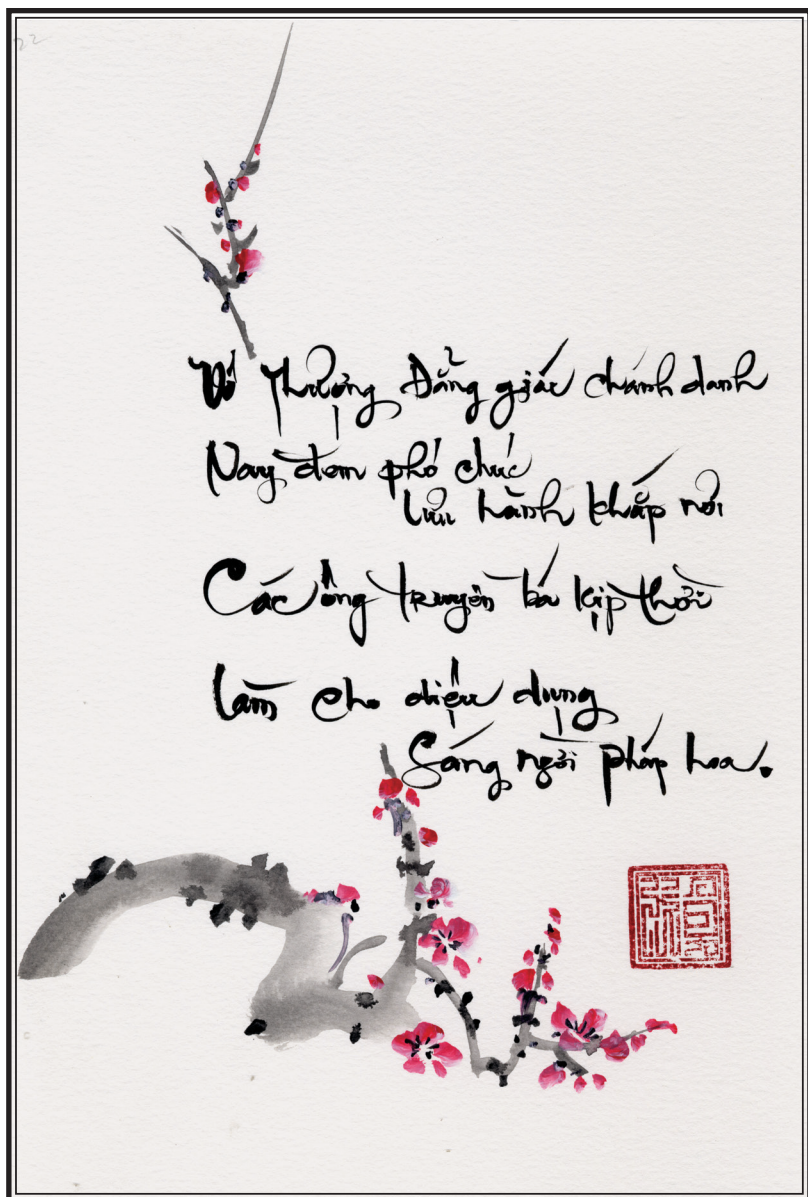 22
Vô Thượng Đẳng giác chánh danh
Nay đem phó chúc
lưu hành khắp nơi
Các ông truyền bá kịp thời
làm cho diệu dụng
Sáng ngời pháp hoa.